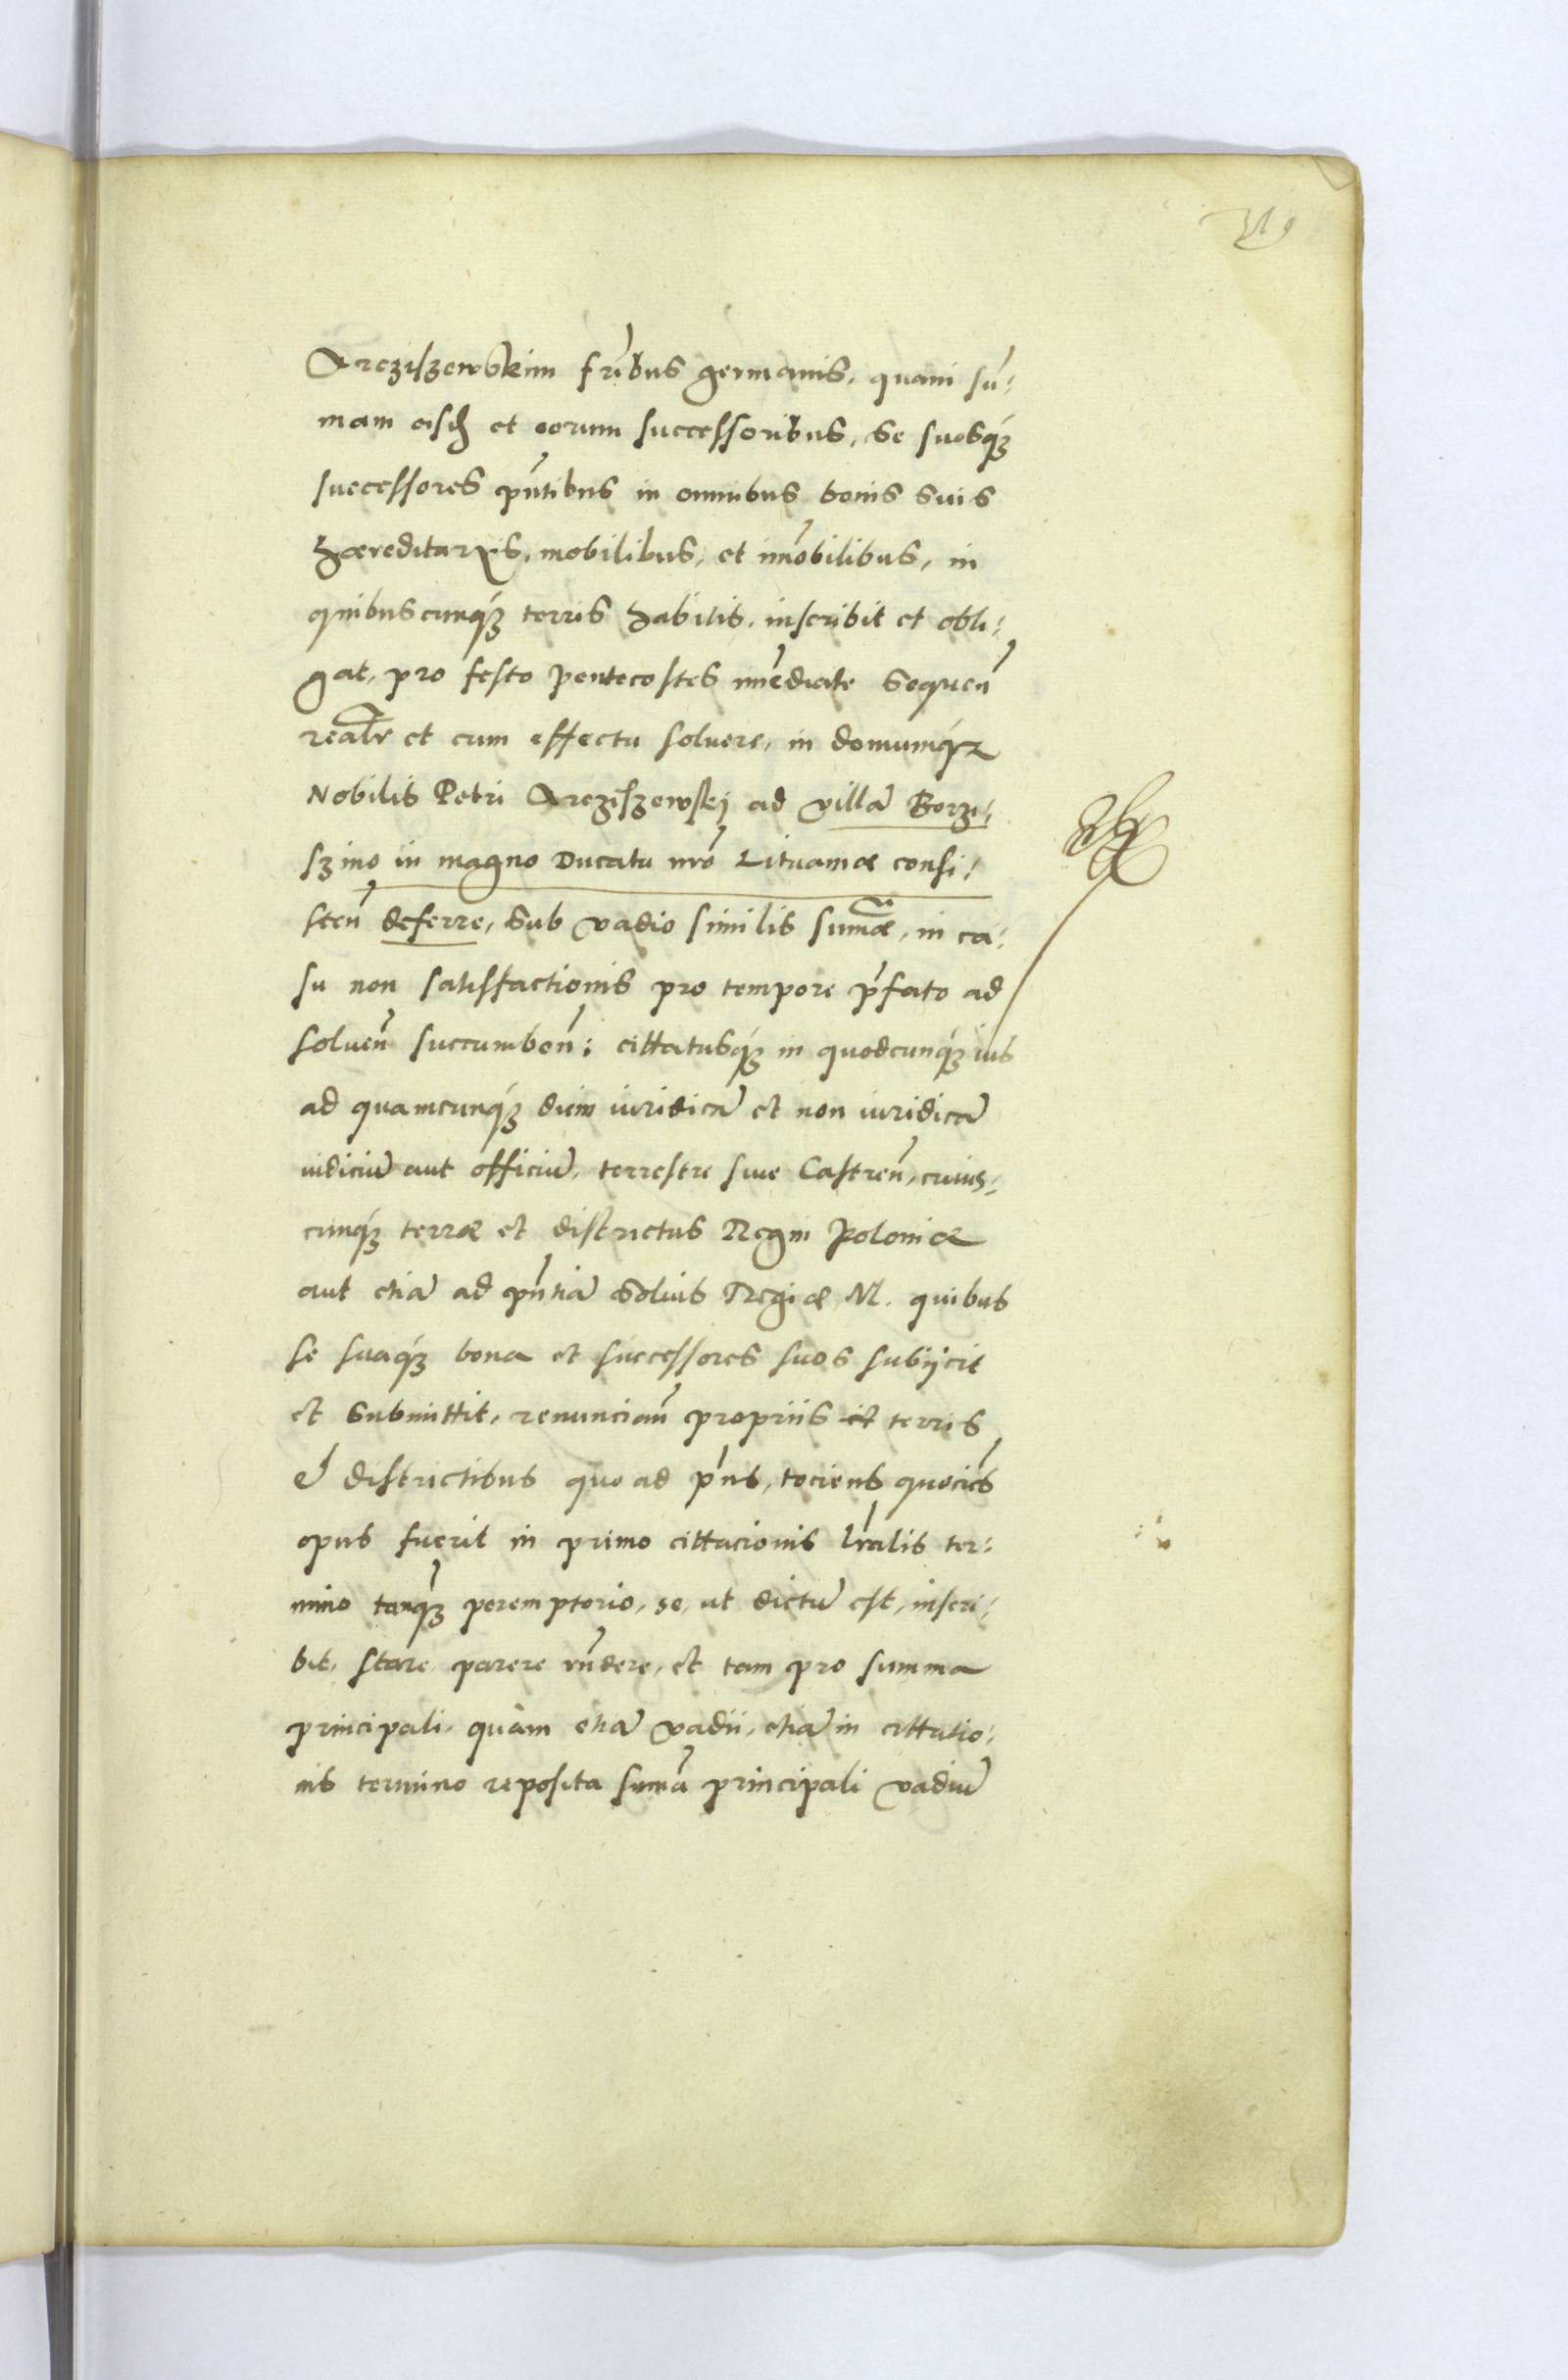 Arcziszewskim fribus germanis, quam sum̄:
mam eisd et eorum successoribus, se suosq3
successores pn̄tibus in omnibus bonis suis
haereditariis, mobilibus, et im̄obilibus, in
quibuscunq3 terris habitis, inscribit et obli:
gat, pro festo Pentecostes im̄ediate sequen̄
realr et cum effectu soluere, in domumq3
Nobilis Petri Arcziszewskj ad villā Borzi:
szino in magno Ducatu nr̄o Lituaniae consi:
sten̄ deferre, sub vadio similis sum̄ae, in ca:
su non satisfactionis pro tempore p̄fato ad
soluen̄ succumben̄: cittatusq3 in quodcunq3 ius
ad quamcunq3 diem iuridicā et non iuridicā
iudiciū aut officiū, terrestre siue Castren̄, cuius:
cunq3 terrae et districtus Regni Poloniae
aut etiā ad pn̄tiā Solius Regiae M. quibus
se suaq3 bona et successores suos subijcit
et submittit, renuncian̄ propriis et terris
et districtibus quo ad p̄ns, tociens quociēs
opus fuerit in primo cittacionis lr̄alis ter:
mino tanq3 peremptorio, se, ut dictū est, inscri:
bit, stare parere rn̄dere, et tam pro summa
principali, quàm etiā vadii, etiā in cittatio:
nis termino reposita sum̄a principali vadiū